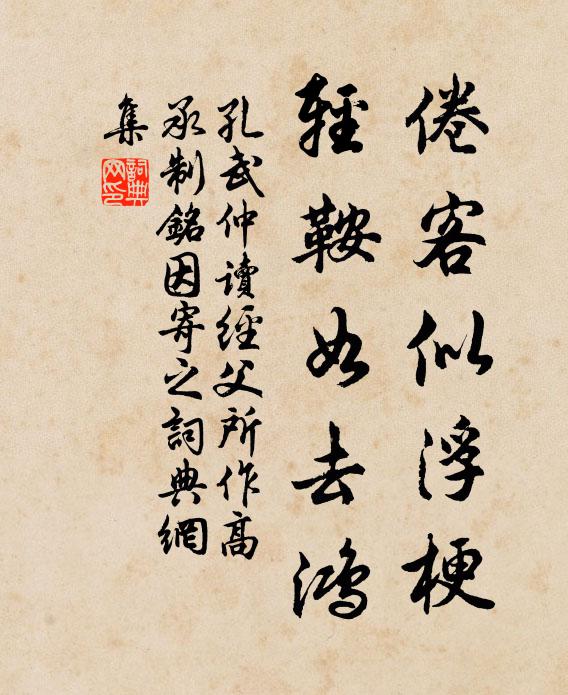 倦客似浮梗
輕鞍如去鴻
孔武仲讀經父所作高
承制銘因寄之詞典網
集
詞典
网印